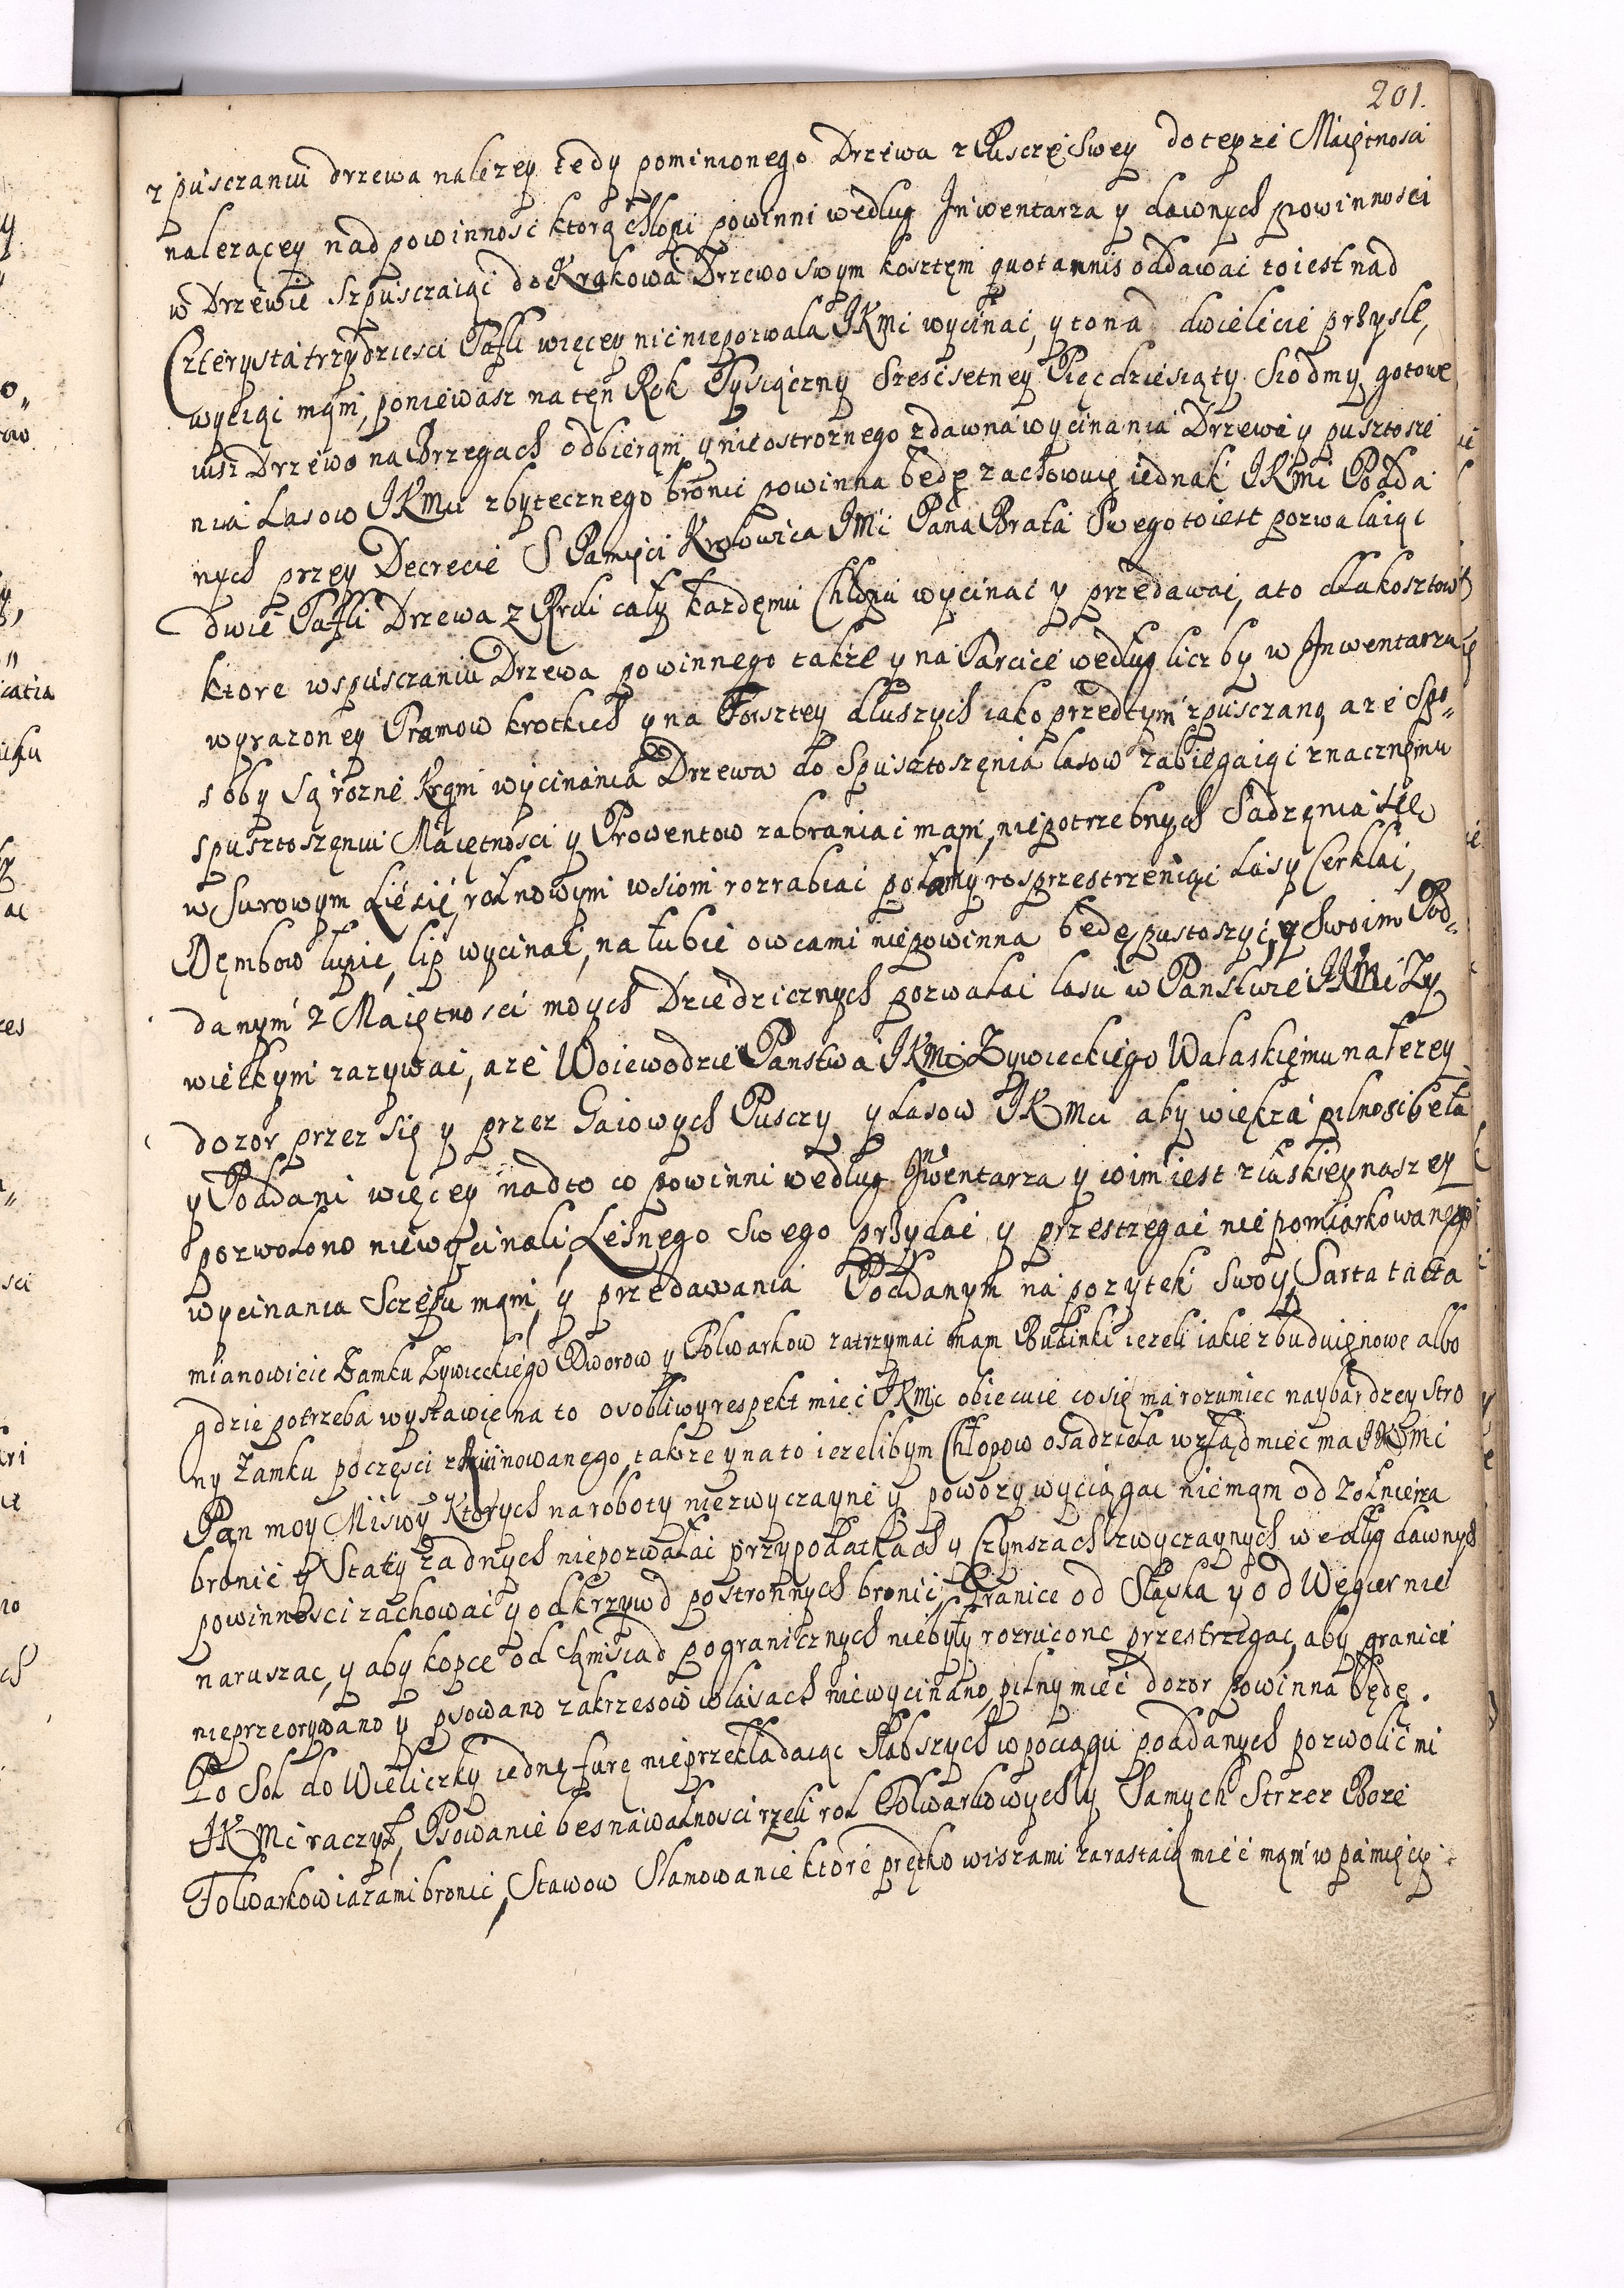 201.
z pusczaniu drzewa nalezey tedy pominionego Drzewa z Pusczej Swey do teyze Maiętnosci
nalezącey nad powinnosc ktorą chłopi powinni według Inwentarza y dawnych powinnosci
w Drzewie szpusczaiąc do Krakowa Drzewo swym kosztęm quotannis oddawac to iest nad
Czterysta trzydziesci Tafli więcey nic niepozwala JKMc wycinac, y to na dwielicie przysłe,
wyciąc mąm, poniewasz na tęn Rok Tysiączny Szescsetney Pięcdziesiąty Siodmy gotowe
iusz Drzewo na Brzegach odbierąm y nieostroznego zdawna wycinania Drzewa y pusztosze
nia Lasow JKMci zbytecznego bronic powinna będę zachowuię iednak JKMc Podda
nych przey Decrecie S Pamięci Krolowica JMci Pana Brata Swego to iest pozwalaiąc
dwie Tafli Drzewa z Roli całey kazdęmu Chłopu wycinac y przedawac, a to dla kosztow
ktore wspusczaniu Drzewa powinnego także y na Parcice według liczby w Inwentarzu
wyrazoney Pramow krotkich y na Forsztey dłuszych iako przedtym zpusczano, a ze Spo„
soby są rozne krąmi wycinania Drzewa do Spusztoszęnia lasow zabiegaiąc znacznęmu
spusztoszęniu Maiętnosci y Prowentow zabraniac mąm, niepotrzebnych Sadzęnia się
w Surowym Liesie, rol nowymi wsiom rozrabiac polamy rosprzestrzeniąc Lasy Cerklac,
Dęmbow łupic, lip wycinac, na łubie owcami niepowinna będę pustoszyc, y Swoim Pod„
danym z Maiętnosci moych Dziedzicznych pozwalac lasu w Panstwie JKMci Zy
wieckymi zazywac, a ze Woiewodzie Panstwa JKMci Zywieckiego Wałaskięmu nalezey
dozor przez się y przez Gaiowych Pusczy y Lasow JKMci aby większa pilnosc beła
y Poddani więcey nadto co powinni według Inwentarza y w im iest z łaskiey naszey
pozwolono niewycinali, Lesnego swego przydac y przestrzegac niepomiarkowanego
wycinania Sczepu mąm, y przedawania Poddanym na pozytek swoy, Sarta tacta
mianowicie Zamku Zywieckiego Dworow y Folwarkow zatrzymac mam Budinki iezeli iakie zbuduię nowe albo
gdzie potrzeba wystawię na to osobliwy respekt miec JKMc obiecuie co się ma rozumiec naybardzey stro
ny Zamku poczęsci zruinowanego, takze y na to iezelibym Chłopow osadzieła wzląd miec ma JKMc
Pan moy Msciwy Ktorych na roboty niezwyczayne y powozy wyciągac nie mąm od Zołnierza
bronic y Stacy zadnych niepozwalac przy podatkach y Czynszach zwyczaynych według dawnych
powinnosci zachowac y od krzywd postronnych bronic, Granice od Sląska y od Węgier nie
naruszac, y aby kopce od Sąmsiad pogranicznych niebyły rozrucone przestrzegac, aby granice
nieprzeorywano y psowano zakrzesow w lasach niewycinano, pilny miec dozor powinna będę.
Po Sol do Wieliczky iednę furę nieprzekładaiąc słabszych w pociągu poddanych pozwolic mi
JKMc raczył, Psowanie bes nawałnosci rzeki rol Folwarkowych y samych Strzez Boze
Folwarkow iazami bronic, Stawow Slamowanie ktore prętko wiszami zarastaią miec mąm w pamięci